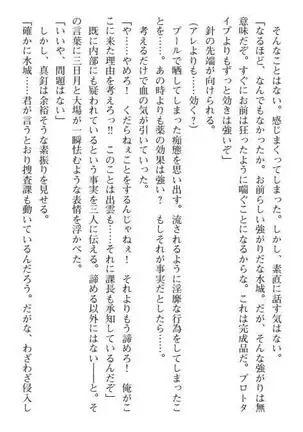 そんなことはない。感じまくってしまった。しかし、素直に話す気はない。
「なるほど、なんでもなかったか。お前らしい強がりだな水城。だが、そんな強がりは無
意味だぞ。すぐにお前は狂ったように喘ぐことになるからな。これは完成品だ。プロトタ
イプよりもずっと効きは強いぞ」
　針の先端が向けられる。
（アレよりも……効く？）
　プールで晒してしまった痴態を思い出す。流されるように淫靡な行為をしてしまったこ
とを……。あの時よりも薬の効果は強い？　もしそれが事実だとしたら……。
　考えるだけで血の気が引いていった。
「や……やめろ！　くだらねぇことをするんじゃねぇ！　それよりもう諦めろ！　俺がこ
こに来た理由を考えろっ!!　このことは出雲も……それに課長も承知しているんだぞ」
　既に内部にも疑われているということを三人に伝える。諦める以外にはない――と。そ
の言葉に三日月と大場が一瞬怯むような表情を浮かべた。
「いいや、問題はない」
　しかし、真釘は余裕そうな素振りを見せる。
「確かに水城……君が言うとおり捜査課も動いているんだろう。だがな、わざわざ侵入し